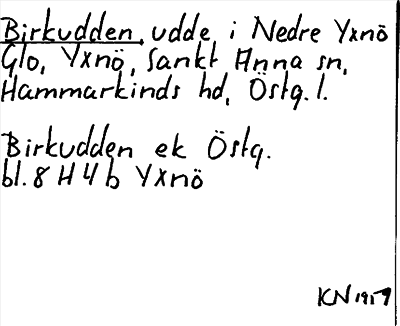 Birkudden, udde i Nedre Yxnö
Glo, Yxnö, Sankt Anna sn,
Hammarkinds hd, Östg. l.
Birkudden ek Östg.
bl. 8 H 4 b Yxnö
KN 1959